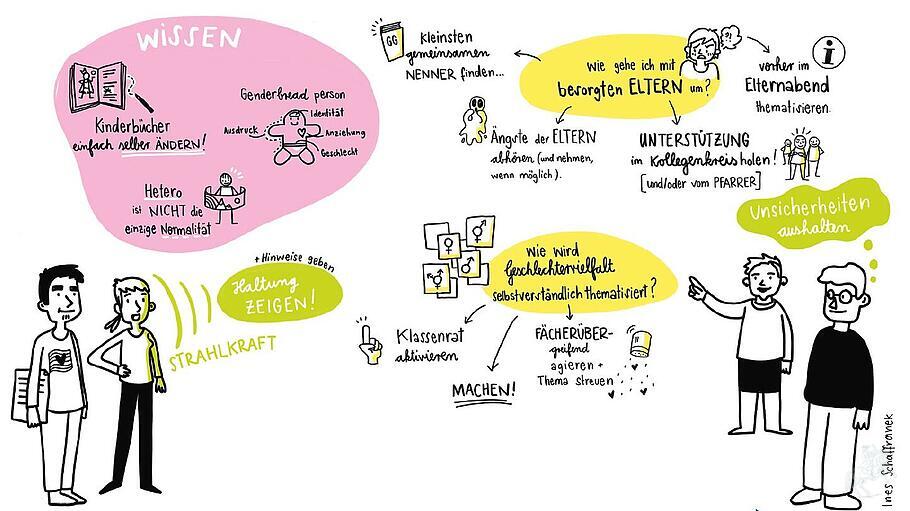 WISSEN
Kinderbücher
einfach selber ÄNDERN!
Genderbread person
Identität
Ausdruck
Anziehung
Geschlecht
Hetero
ist NICHT die
einzige Normalität
+ Hinweise geben
Haltung
ZEIGEN!
STRAHLKRAFT
GG
Kleinsten
gemeinsamen
NENNER finden...
Wie gehe ich mit
besorgten ELTERN um?
?!
i
vorher im
Elternabend
thematisieren.
Ängste der ELTERN
abhören (und nehmen,
wenn möglich).
UNTERSTÜTZUNG
im Kollegenkreis holen!
[und/oder vom PFARRER]
Wie wird
Geschlechtervielfalt
selbstverständlich thematisiert?
Klassenrat
aktivieren
MACHEN!
FÄCHERÜBER-
greifend
agieren +
Thema streuen
Unsicherheiten
aushalten
Ines Schaffranek